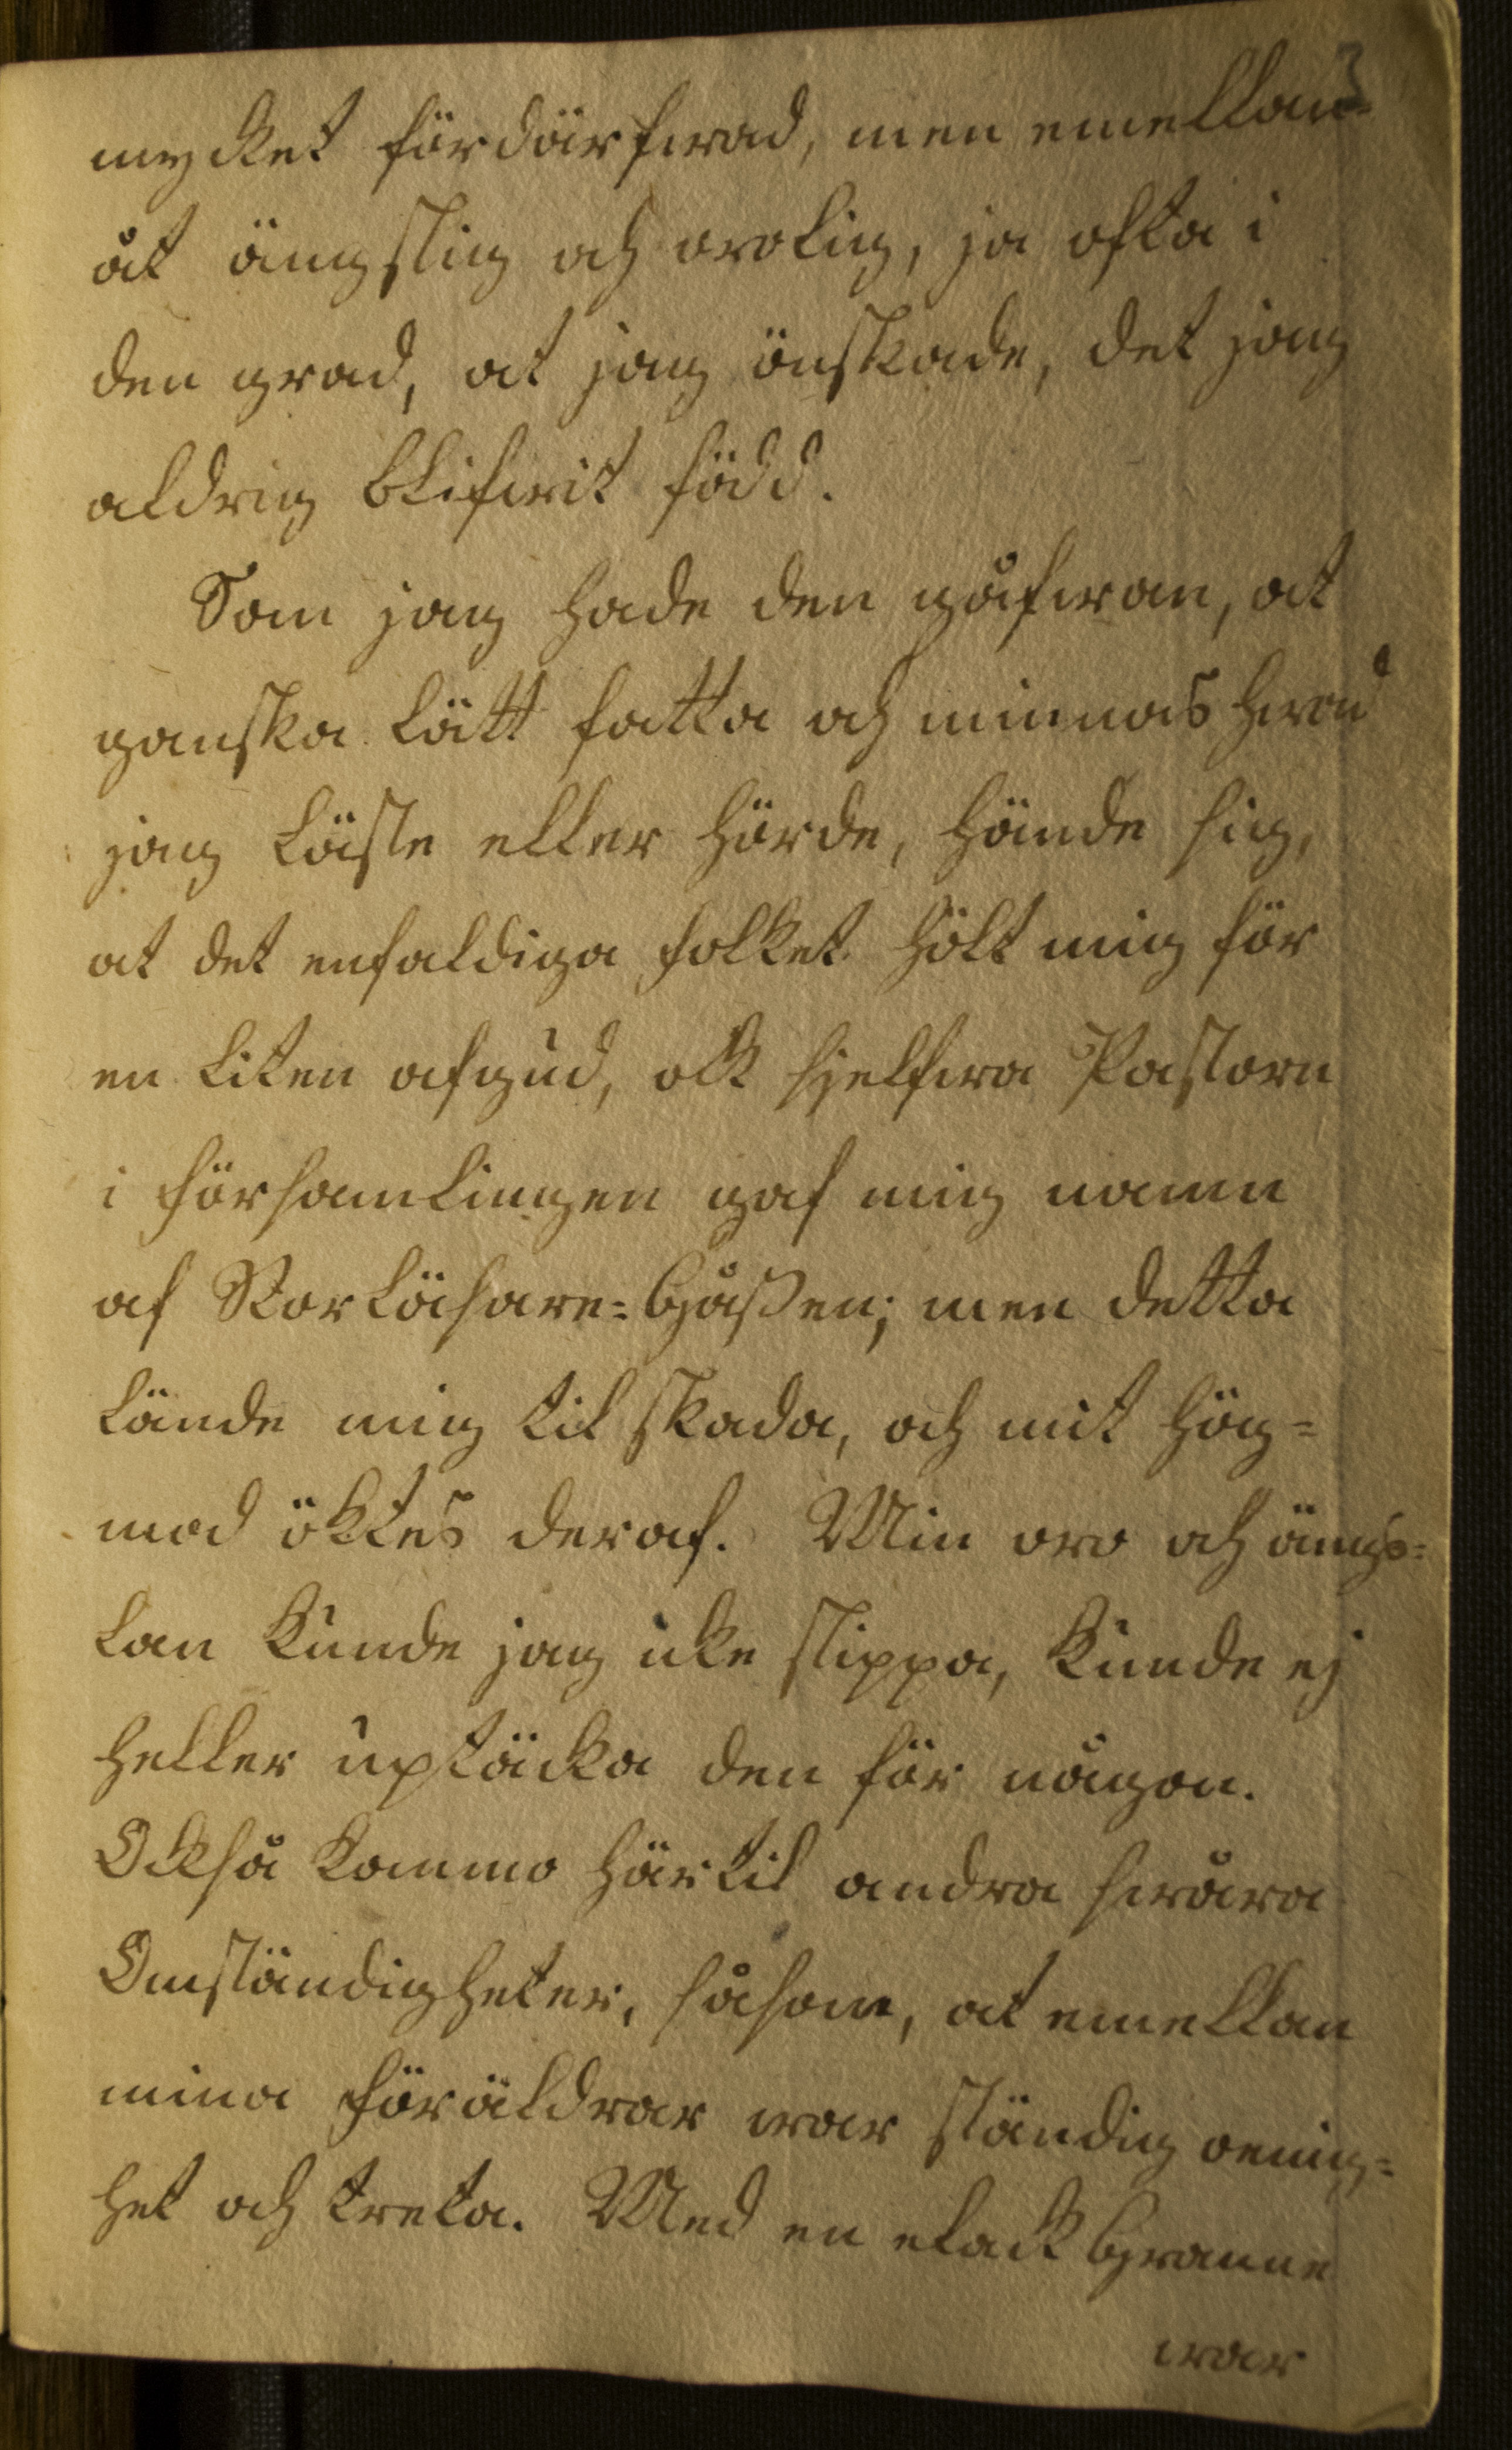 3
mycket fördärfwad, men emellan-
åt ängslig och orolig, ja ofta i
den grad, at jag önskade, det jag
aldrig blifwit född.
Som jag hade den gåfwan, at
ganska lätt fatta och minnas hwad
jag läste eller hörde, hände sig,
at det enfaldiga folket hölt mig för
en liten afgud, ock sjelfwa Pastorn
i församlingen gaf mig namn
af Storläsare-Gåßen; men detta
lände mig til skada, och mit hög=
mod öktes deraf. Min oro och ängs=
lan kunde jag icke slippa, kunde ej
heller uptäcka den för någon.
Också kommo härtil andra swåra
Omständigheter, såsom, at emellan
mina föräldrar war ständig oenig=
het och treta. Med en elack Granne
war